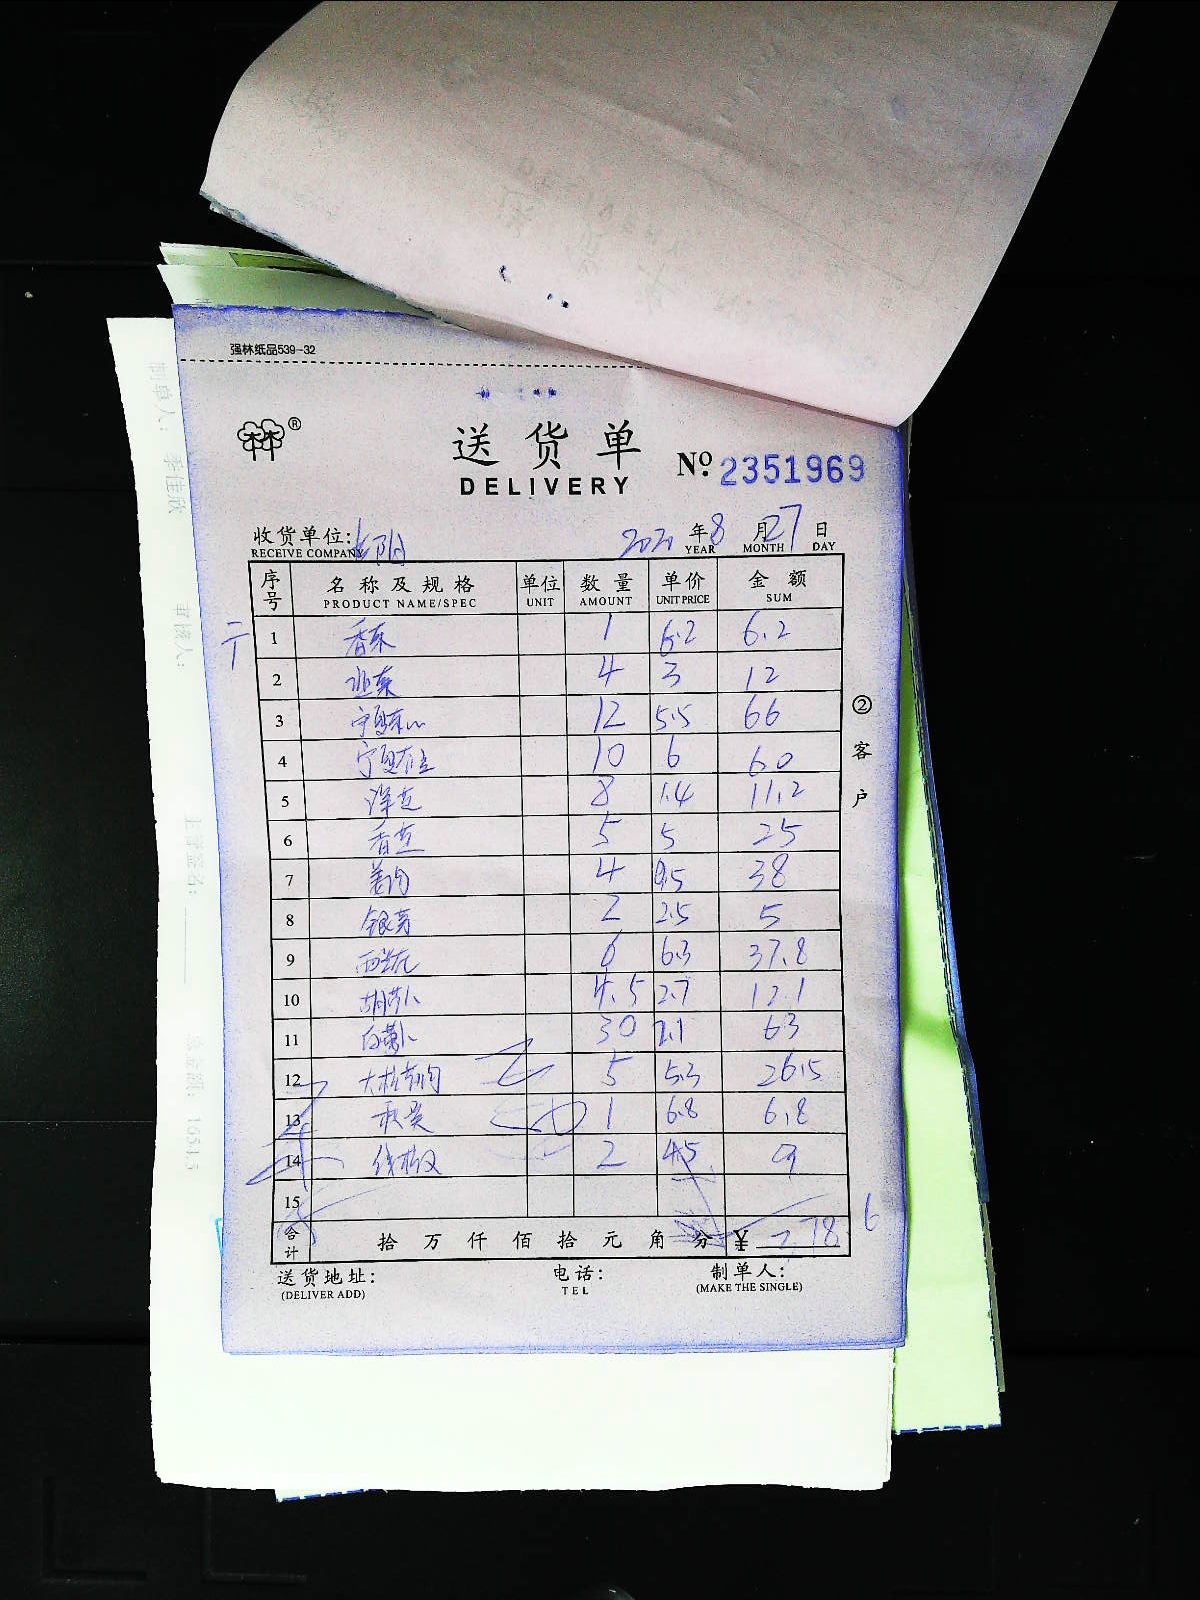 强林纸品539-32
送货单
DELIVERY
№ 2351969
收货单位:
RECEIVE COMPANY
年8月27日
YEAR MONTH DAY
序号 名称及规格 单位 数量 单价 金额
PRODUCT NAME/SPEC UNIT AMOUNT UNIT PRICE SUM
1 香菜 1 6.2 6.2
2 韭菜 4 3 12
3 宁夏菜心 12 5.5 66
4 10 6 60
5 洋芝 8 1.4 11.2
6 香芝 5 5 25
7 4 9.5 38
8 银芽 2 2.5 5
9 西兰花 6 6.3 37.8
10 胡萝卜 4.5 2.7 12.1
11 白萝卜 30 2.1 63
12 5 5.3 26.5
13 秋葵 1 6.8 6.8
14 线椒 2 4.5 9
15
合计 拾 万 仟 佰 拾 元 角 分 ¥
送货地址: 电话: 制单人:
(DELIVER ADD) TEL (MAKE THE SINGLE)
②客户
制单人: 李佳欣
审核人:
1651.5